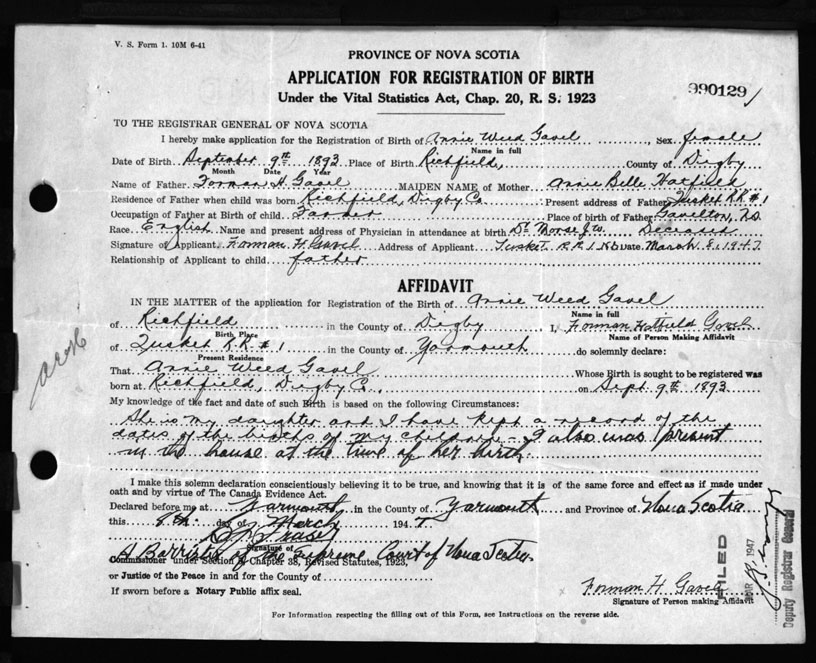 V. S. Form 1. 10M 6-41
PROVINCE OF NOVA SCOTIA
APPLICATION FOR REGISTRATION OF BIRTH
990129
Under the Vital Statistics Act, Chap. 20, R. S. 1923
TO THE REGISTRAR GENERAL OF NOVA SCOTIA
I hereby make application for the Registration of Birth of Annie Weed Gavel Sex female
Name in full
Date of Birth September 9th 1893 Place of Birth Richfield, County of Digby
Month Date Year
Name of Father Forman H. Gavel MAIDEN NAME of Mother Annie Belle Hatfield
Residence of Father when child was born Richfield, Digby Co Present address of Father Tusket R.R. #1
Occupation of Father at Birth of child Farmer Place of birth of Father Gavelton, N.S.
Race English Name and present address of Physician in attendance at birth Dr. Morse Deceased
Signature of Applicant Forman H Gavel Address of Applicant Tusket R.R.1. N.S Date March 8, 1947
Relationship of Applicant to child father
AFFIDAVIT
IN THE MATTER of the application for Registration of the Birth of Annie Weed Gavel
Name in full
of Richfield in the County of Digby I, Forman Hatfield Gavel
Birth Place Name of Person Making Affidavit
of Tusket R.R. #1 in the County of Yarmouth do solemnly declare:
Present Residence
That Annie Weed Gavel Whose Birth is sought to be registered was
born at Richfield, Digby Co., on Sept. 9th 1893
My knowledge of the fact and date of such Birth is based on the following Circumstances:
She is my daughter and I have kept a record of the
dates of the births of my children - I also was present
in the house at the time of her birth.
I make this solemn declaration conscientiously believing it to be true, and knowing that it is of the same force and effect as if made under
oath and by virtue of The Canada Evidence Act.
Declared before me at Yarmouth in the County of Yarmouth and Province of Nova Scotia
this 8th day of March 1947
Signature of
A Barrister of the Supreme Court of Nova Scotia
Commissioner under Section 3, Chapter 38, Revised Statutes, 1923,
or Justice of the Peace in and for the County of
If sworn before a Notary Public affix seal.
Forman H. Gavel
Signature of Person making Affidavit
For Information respecting the filling out of this Form, see Instructions on the reverse side.
FILED
1947
Deputy Registrar General